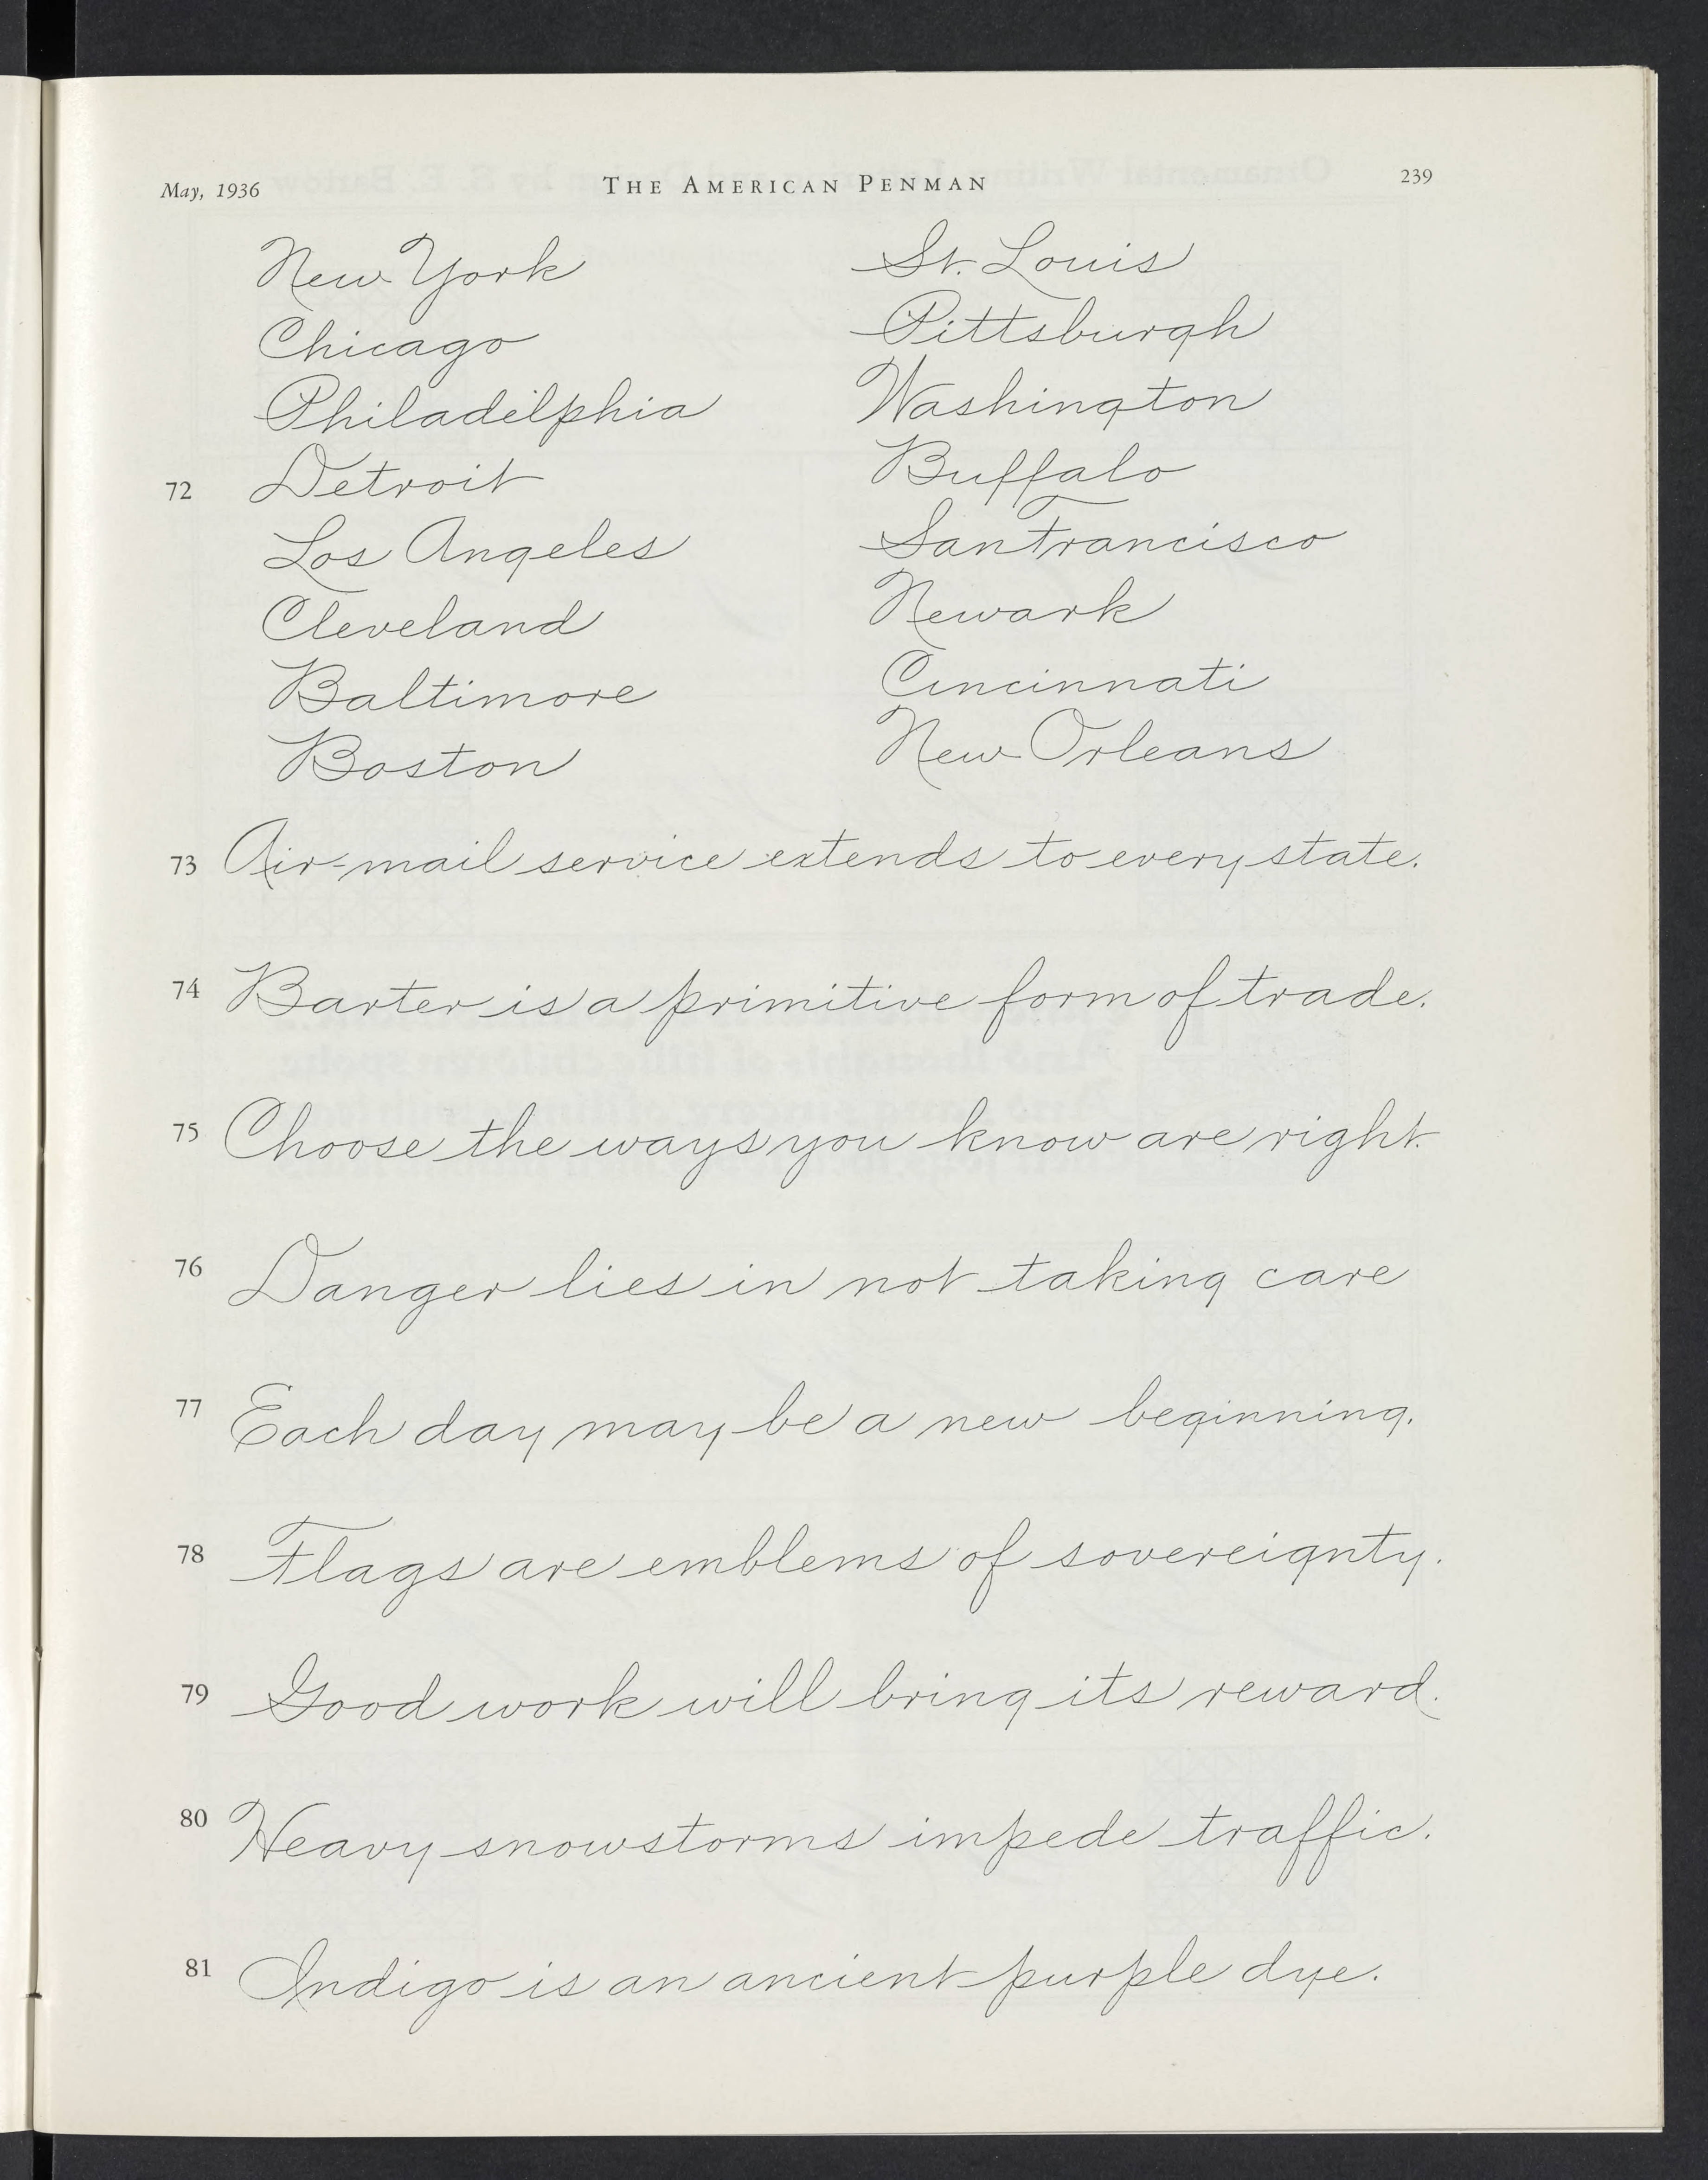 May, 1936 THE AMERICAN PENMAN 239
New York
Chicago
Philadelphia
72 Detroit
Los Angeles
Cleveland
Baltimore
Boston
St. Louis
Pittsburgh
Washington
Buffalo
San Francisco
Newark
Cincinnati
New Orleans
73 Air-mail service extends to every state.
74 Barter is a primitive form of trade.
75 Choose the ways you know are right.
76 Danger lies in not taking care
77 Each day may be a new beginning.
78 Flags are emblems of sovereignty.
79 Good work will bring its reward.
80 Heavy snowstorms impede traffic.
81 Indigo is an ancient purple dye.